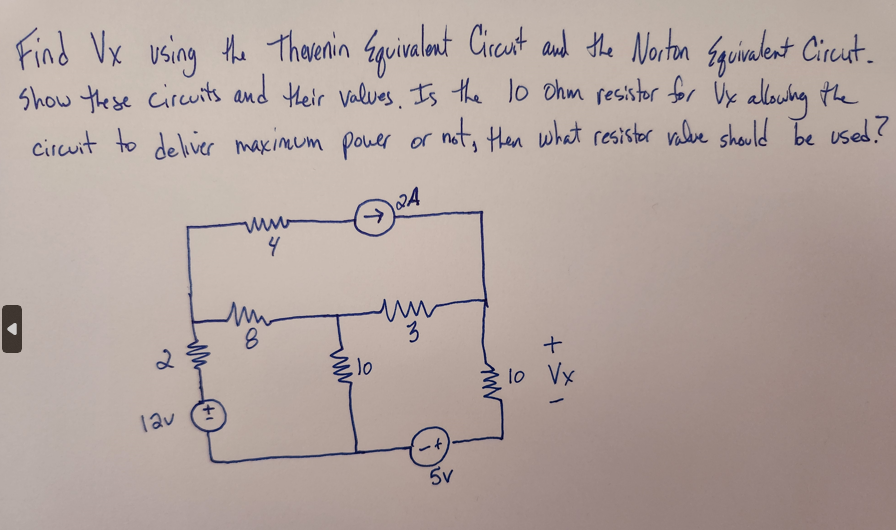 Find Vx using the Thevenin Equivalent Circuit and the Norton Equivalent Circuit.
Show these circuits and their values. Is the 10 ohm resistor for Vx allowing the
circuit to deliver maximum power or not, then what resistor value should be used?
2A
4
8
3
2
10
10
+
Vx
-
12v
+
-
- +
5v